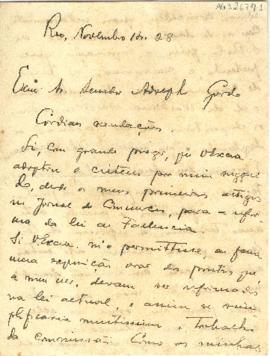 Rio, Novembro 10. 28
Exmo Sr. Senador Adolpho Gordo
Cordiaes saudações.
Li, com grande prazer, q. V Excia
adoptou o criterio por mim suggeri
do, desde os meus primeiros artigos
no Jornal do Commercio, para a refor
ma da lei de Fallencia
Si V Excia. me permittisse, eu faria
uma exposição oral dos pontos que
a meu ver, devem ser reformados
na lei actual, e assim se sim
plificaria muitissimo o trabalho
da commissão. Como as minhas